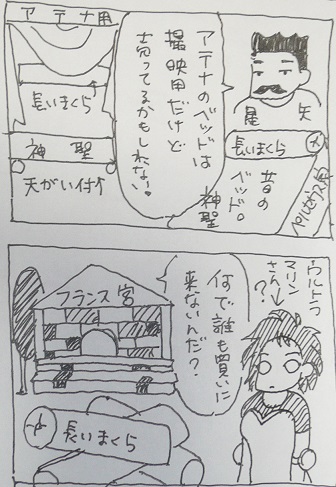 アテナ用
長いまくら
神聖
天がい付
アテナのベッドは
撮映用だけど
売ってるかもしれない。
星矢
長いまくら
昔の
ベッド。
神聖
ウルトラ
マリン
さん?
何で誰も買いに
来ないんだ?
フランス宮
長いまくら